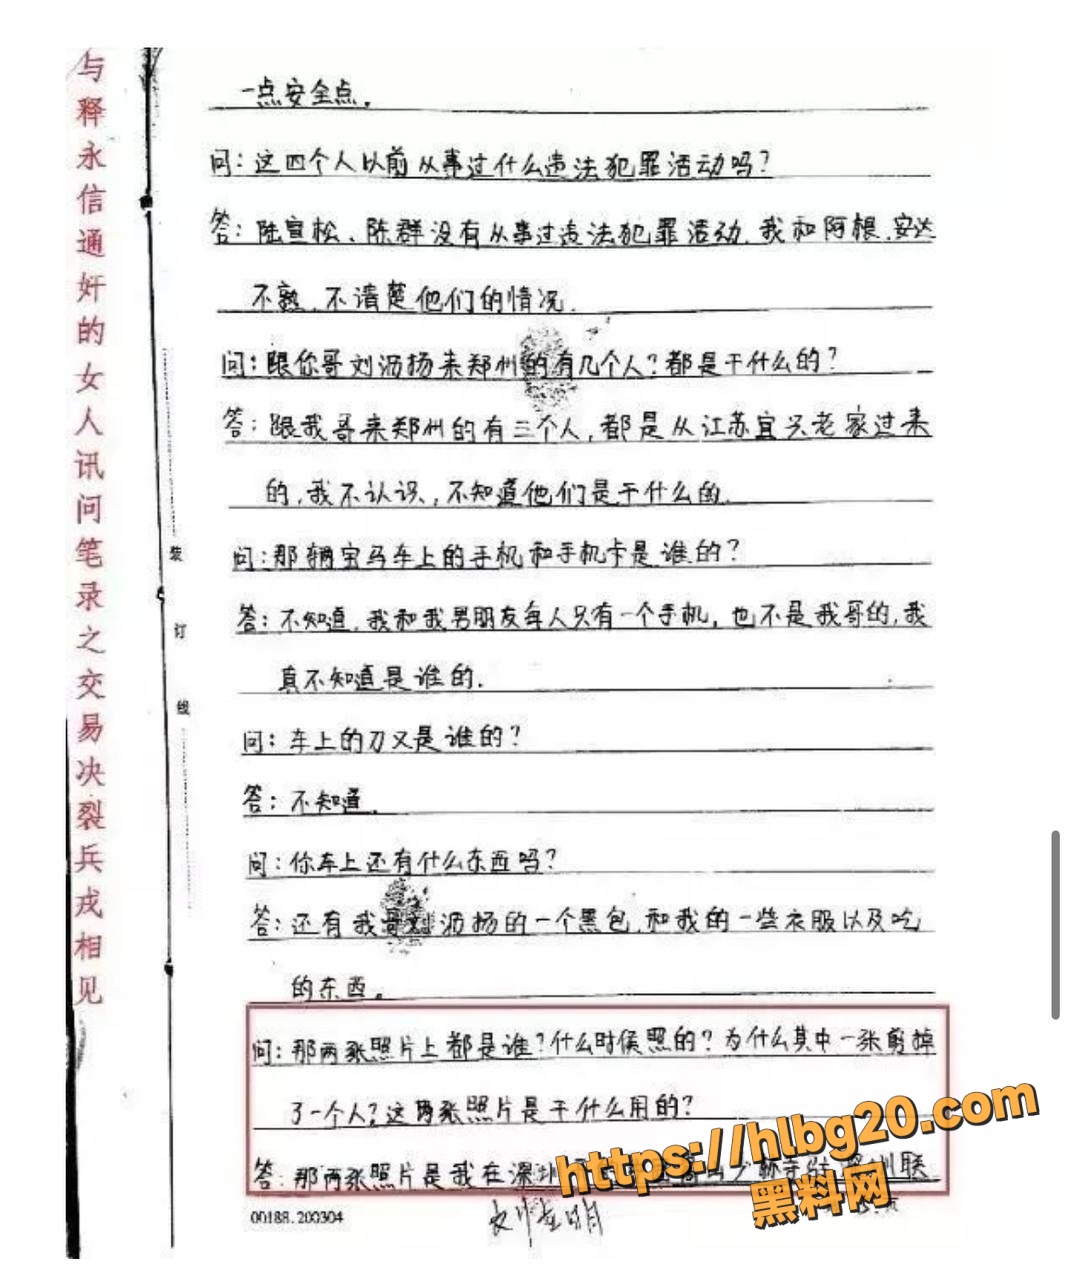 与释永信通奸的女人讯问笔录之交易决裂兵戎相见
装
订
线
一点安全点。
问:这四个人以前从事过什么违法犯罪活动吗?
答:陆宣松、陈群没有从事过违法犯罪活动,我和阿根、安达
不熟,不清楚他们的情况.
问:跟你哥刘沥扬来郑州的有几个人?都是干什么的?
答:跟我哥来郑州的有三个人,都是从江苏宜兴老家过来
的,我不认识,不知道他们是干什么的.
问:那辆宝马车上的手机和手机卡是谁的?
答:不知道,我和我男朋友每人只有一个手机,也不是我哥的,我
真不知道是谁的.
问:车上的刀又是谁的?
答:不知道.
问:你车上还有什么东西吗?
答:还有我哥刘沥扬的一个黑包,和我的一些衣服以及吃
的东西。
问:那两张照片上都是谁?什么时候照的?为什么其中一张剪掉
了一个人?这两张照片是干什么用的?
答:那两张照片是我在深圳
00188.200304
https://hlbg20.com
黑料网